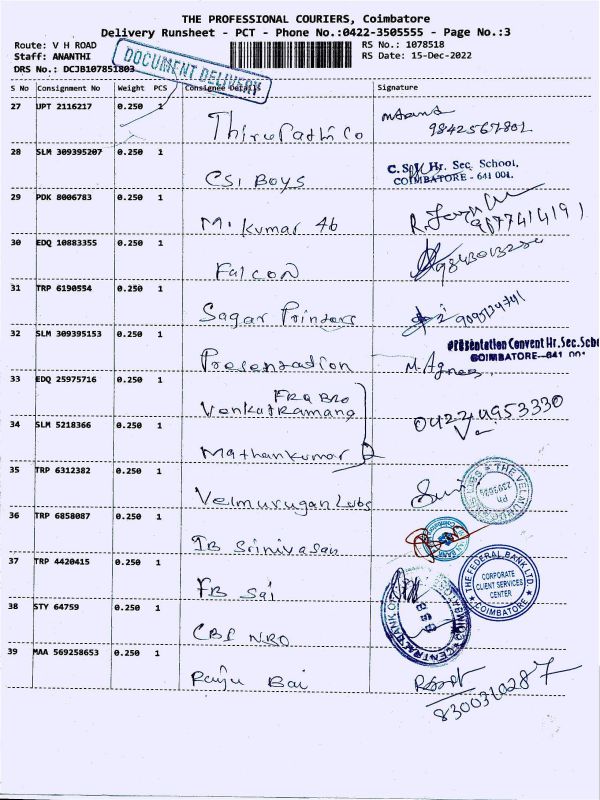 THE PROFESSIONAL COURIERS, Coimbatore
Delivery Runsheet - PCT - Phone No.:0422-3505555 - Page No.:3
Route: V H ROAD
RS No.: 1078518
Staff: ANANTHI
RS Date: 15-Dec-2022
DRS No.: DCJB107851803
DOCUMENT DELIVERY
S No Consignment No Weight PCS Consignee Details Signature
27 UPT 2116217 0.250 1
Thirupathi Co
9842567801
28 SLM 309395207 0.250 1
CSI BOYS
C.S.I. Hr. Sec. School,
COIMBATORE - 641 001.
29 PDK 8006783 0.250 1
M. Kumar Ab
9077414191
30 EDQ 10883355 0.250 1
Falcon
31 TRP 6190554 0.250 1
Sagar Printers
32 SLM 309395153 0.250 1
Presentation
Presentation Convent Hr.Sec.Scho
COIMBATORE--641 001
M. Agnes
33 EDQ 25975716 0.250 1
FRA BRO
Venkatramana
04224953330
34 SLM 5218366 0.250 1
Mathankumar
35 TRP 6312382 0.250 1
Velmurugan Lubs
36 TRP 6858087 0.250 1
IB Srinivasan
37 TRP 4420415 1 0.250 1
FB Sai
THE FEDERAL BANK LTD.
CORPORATE
CLIENT SERVICES
CENTER
COIMBATORE
38 STY 64759 0.250 1
CBI NRO
CENTRAL BANK OF
39 MAA 569258653 0.250 1
Raju Bai
8300310287